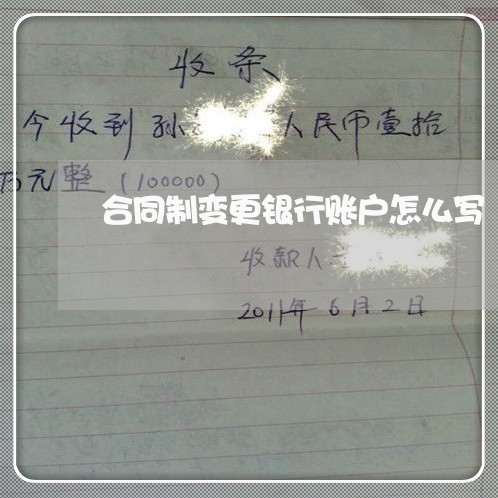 收条
今收到孙 人民币壹拾
万元整（100000）
合同制变更银行账户怎么写
收款人
2011年6月2日